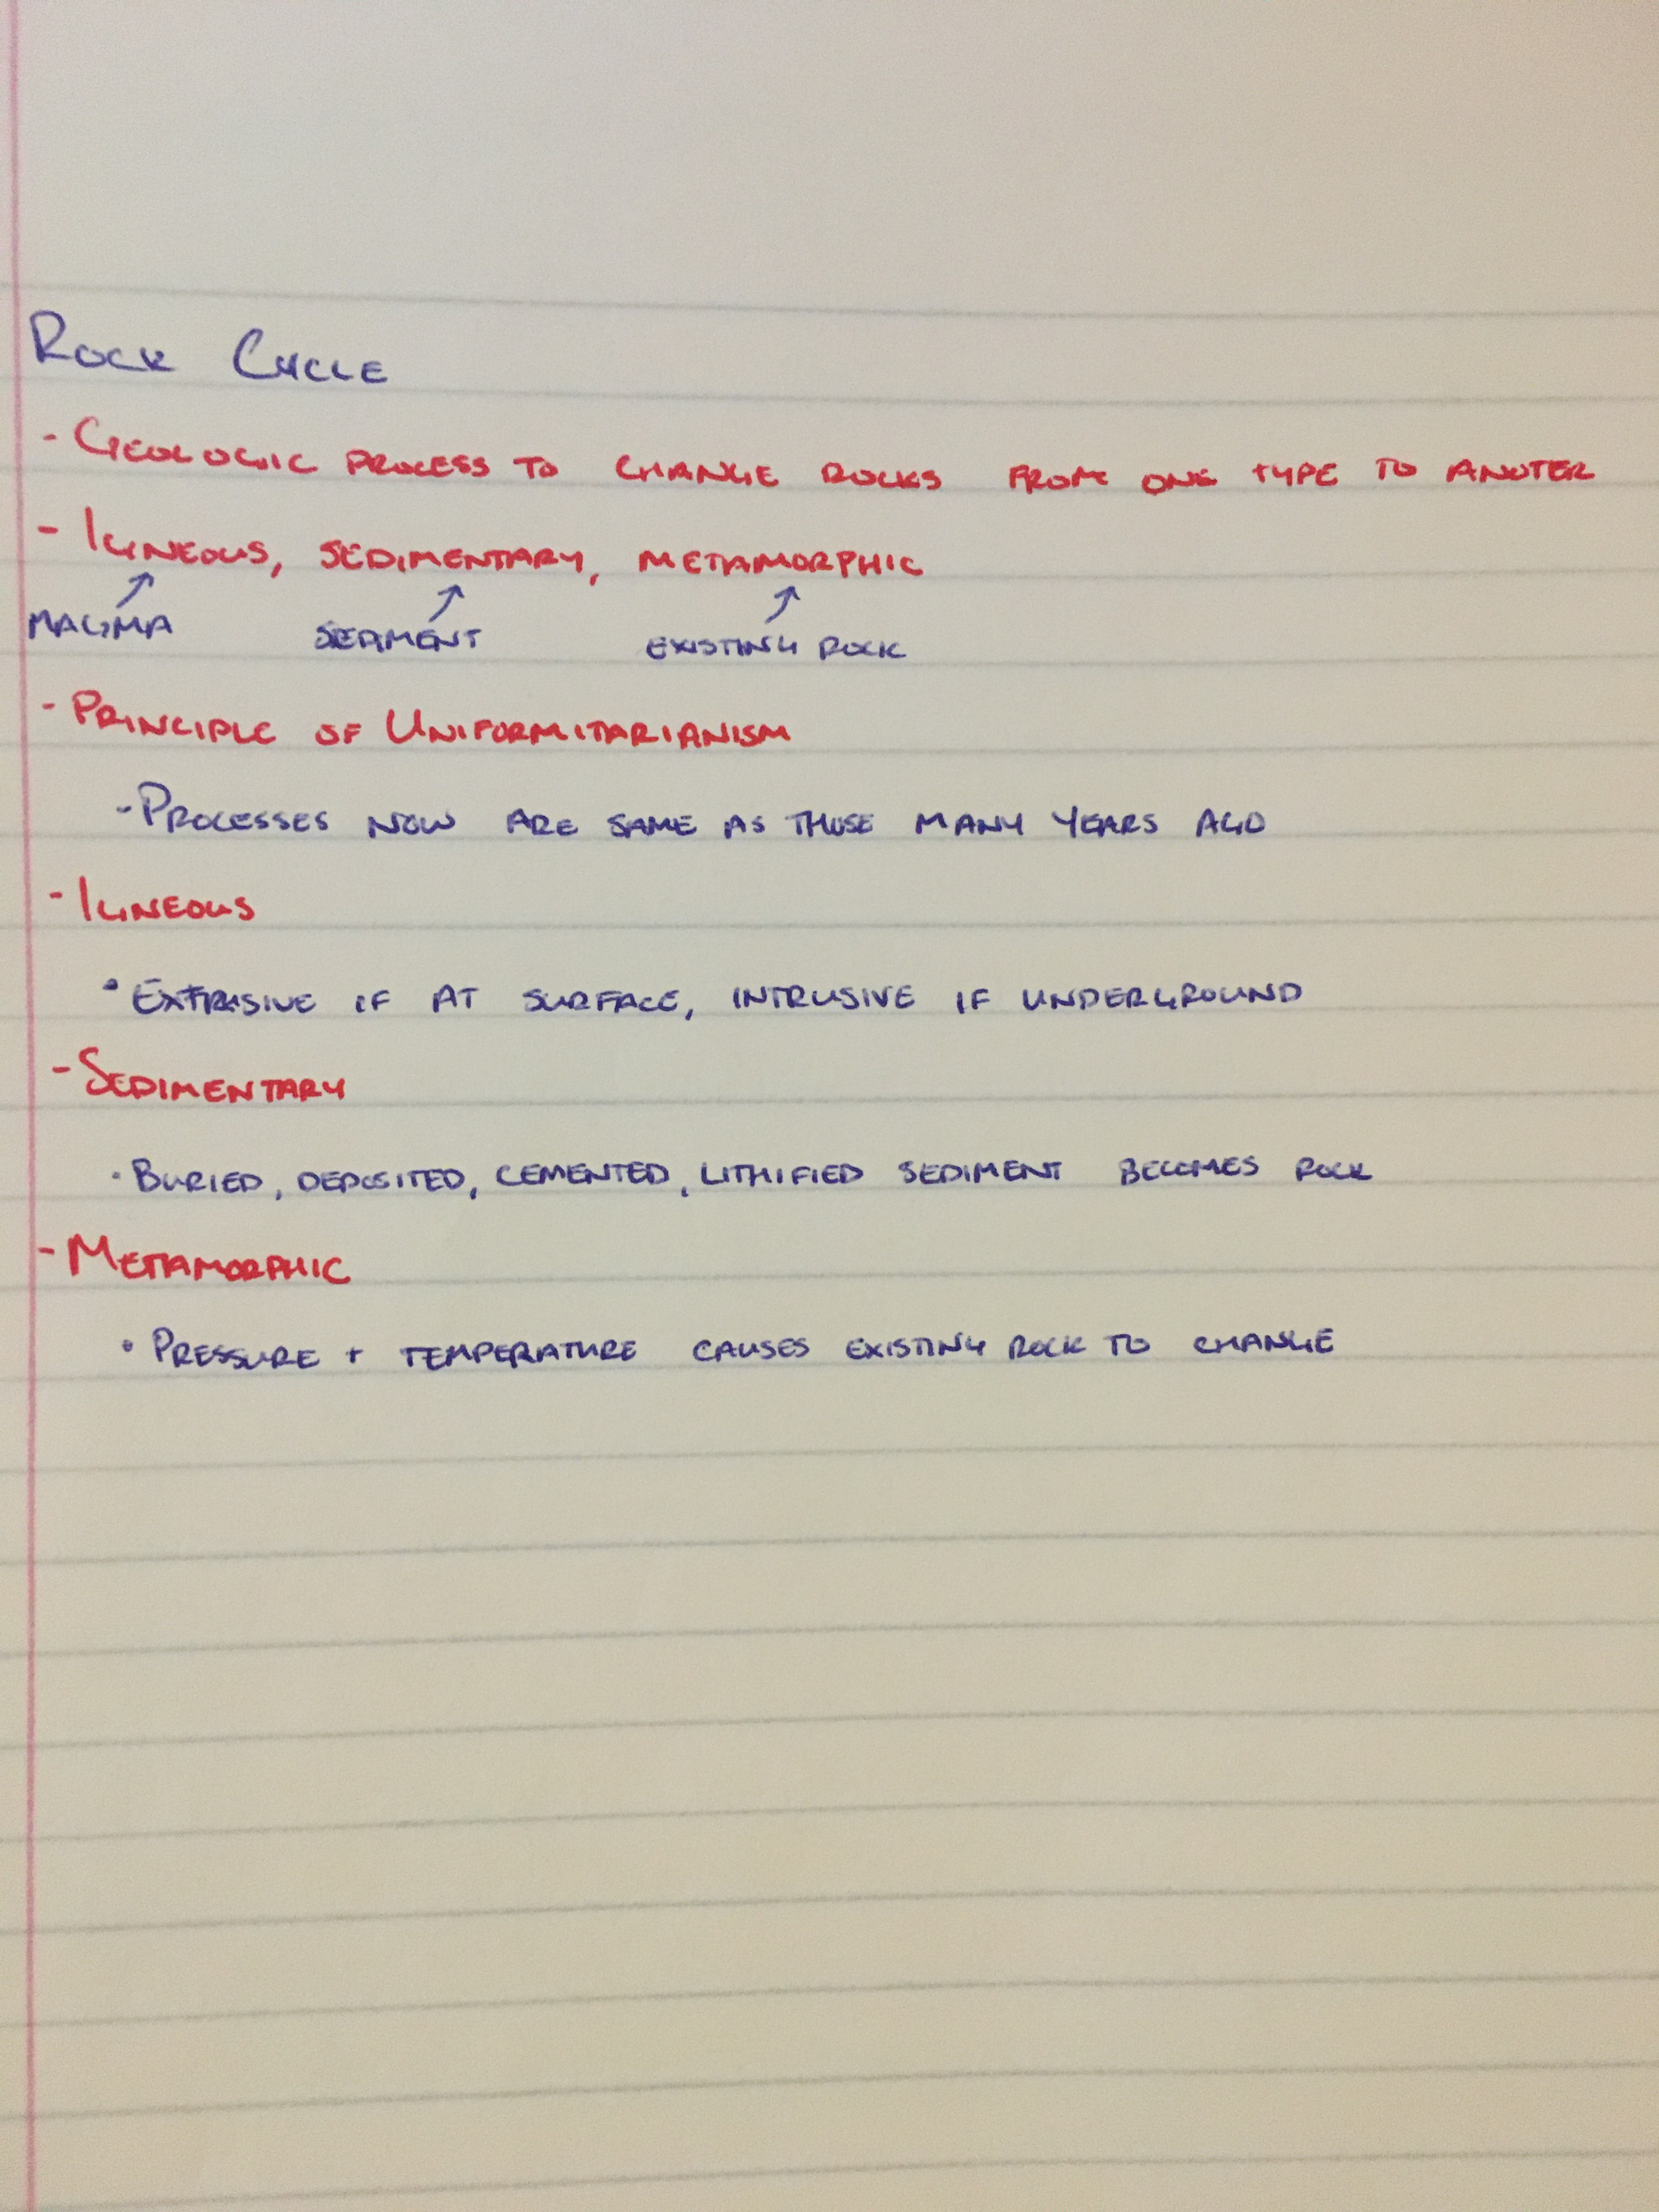 ROCK CYCLE
- GEOLOGIC PROCESS TO CHANGE ROCKS FROM ONE TYPE TO ANOTER
- IGNEOUS, SEDIMENTARY, METAMORPHIC
MAGMA SEDIMENT EXISTING ROCK
- PRINCIPLE OF UNIFORMITARIANISM
- PROCESSES NOW ARE SAME AS THOSE MANY YEARS AGO
- IGNEOUS
• EXTRUSIVE IF AT SURFACE, INTRUSIVE IF UNDERGROUND
- SEDIMENTARY
• BURIED, DEPOSITED, CEMENTED, LITHIFIED SEDIMENT BECOMES ROCK
- METAMORPHIC
• PRESSURE + TEMPERATURE CAUSES EXISTING ROCK TO CHANGE